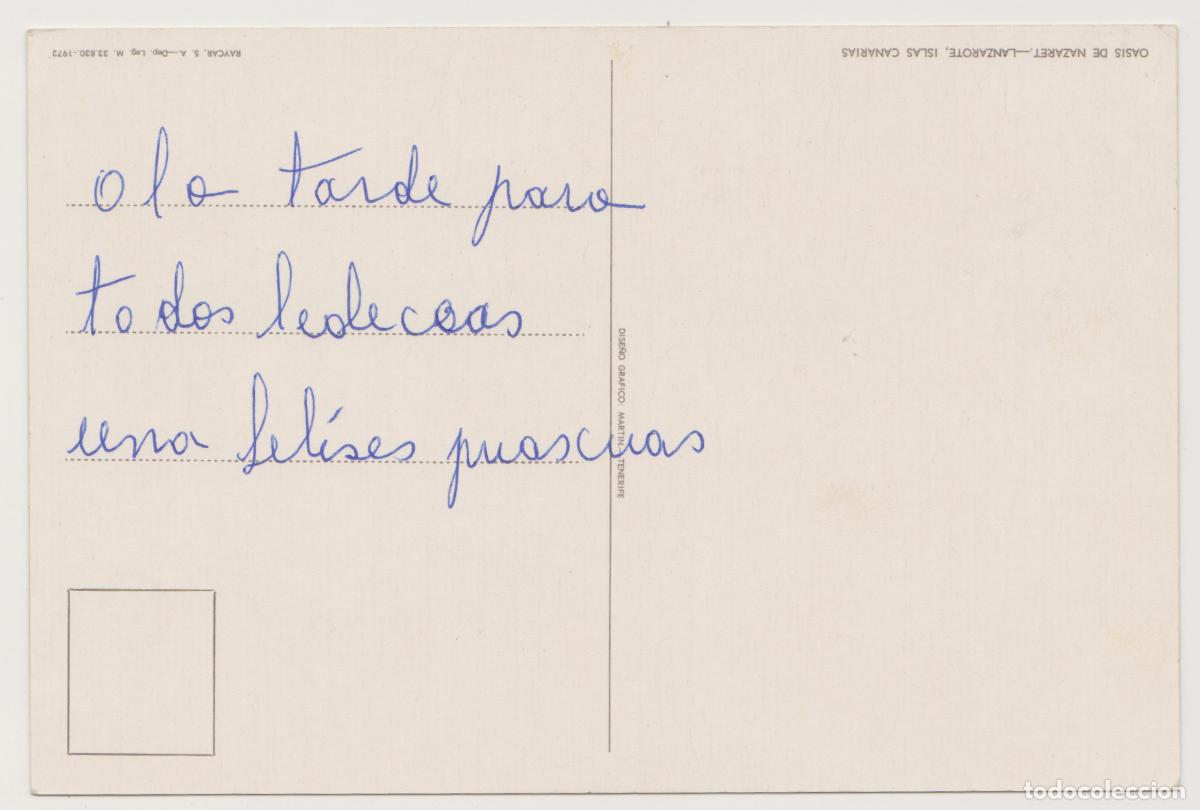 OASIS DE NAZARET.—LANZAROTE, ISLAS CANARIAS
RAYCAR, S. A.—Dep. Leg. M. 33.830.-1972
olo tarde para
todos ledecoas
una felises puascuas
DISEÑO GRAFICO: MARTIN.-TENERIFE
todocoleccion